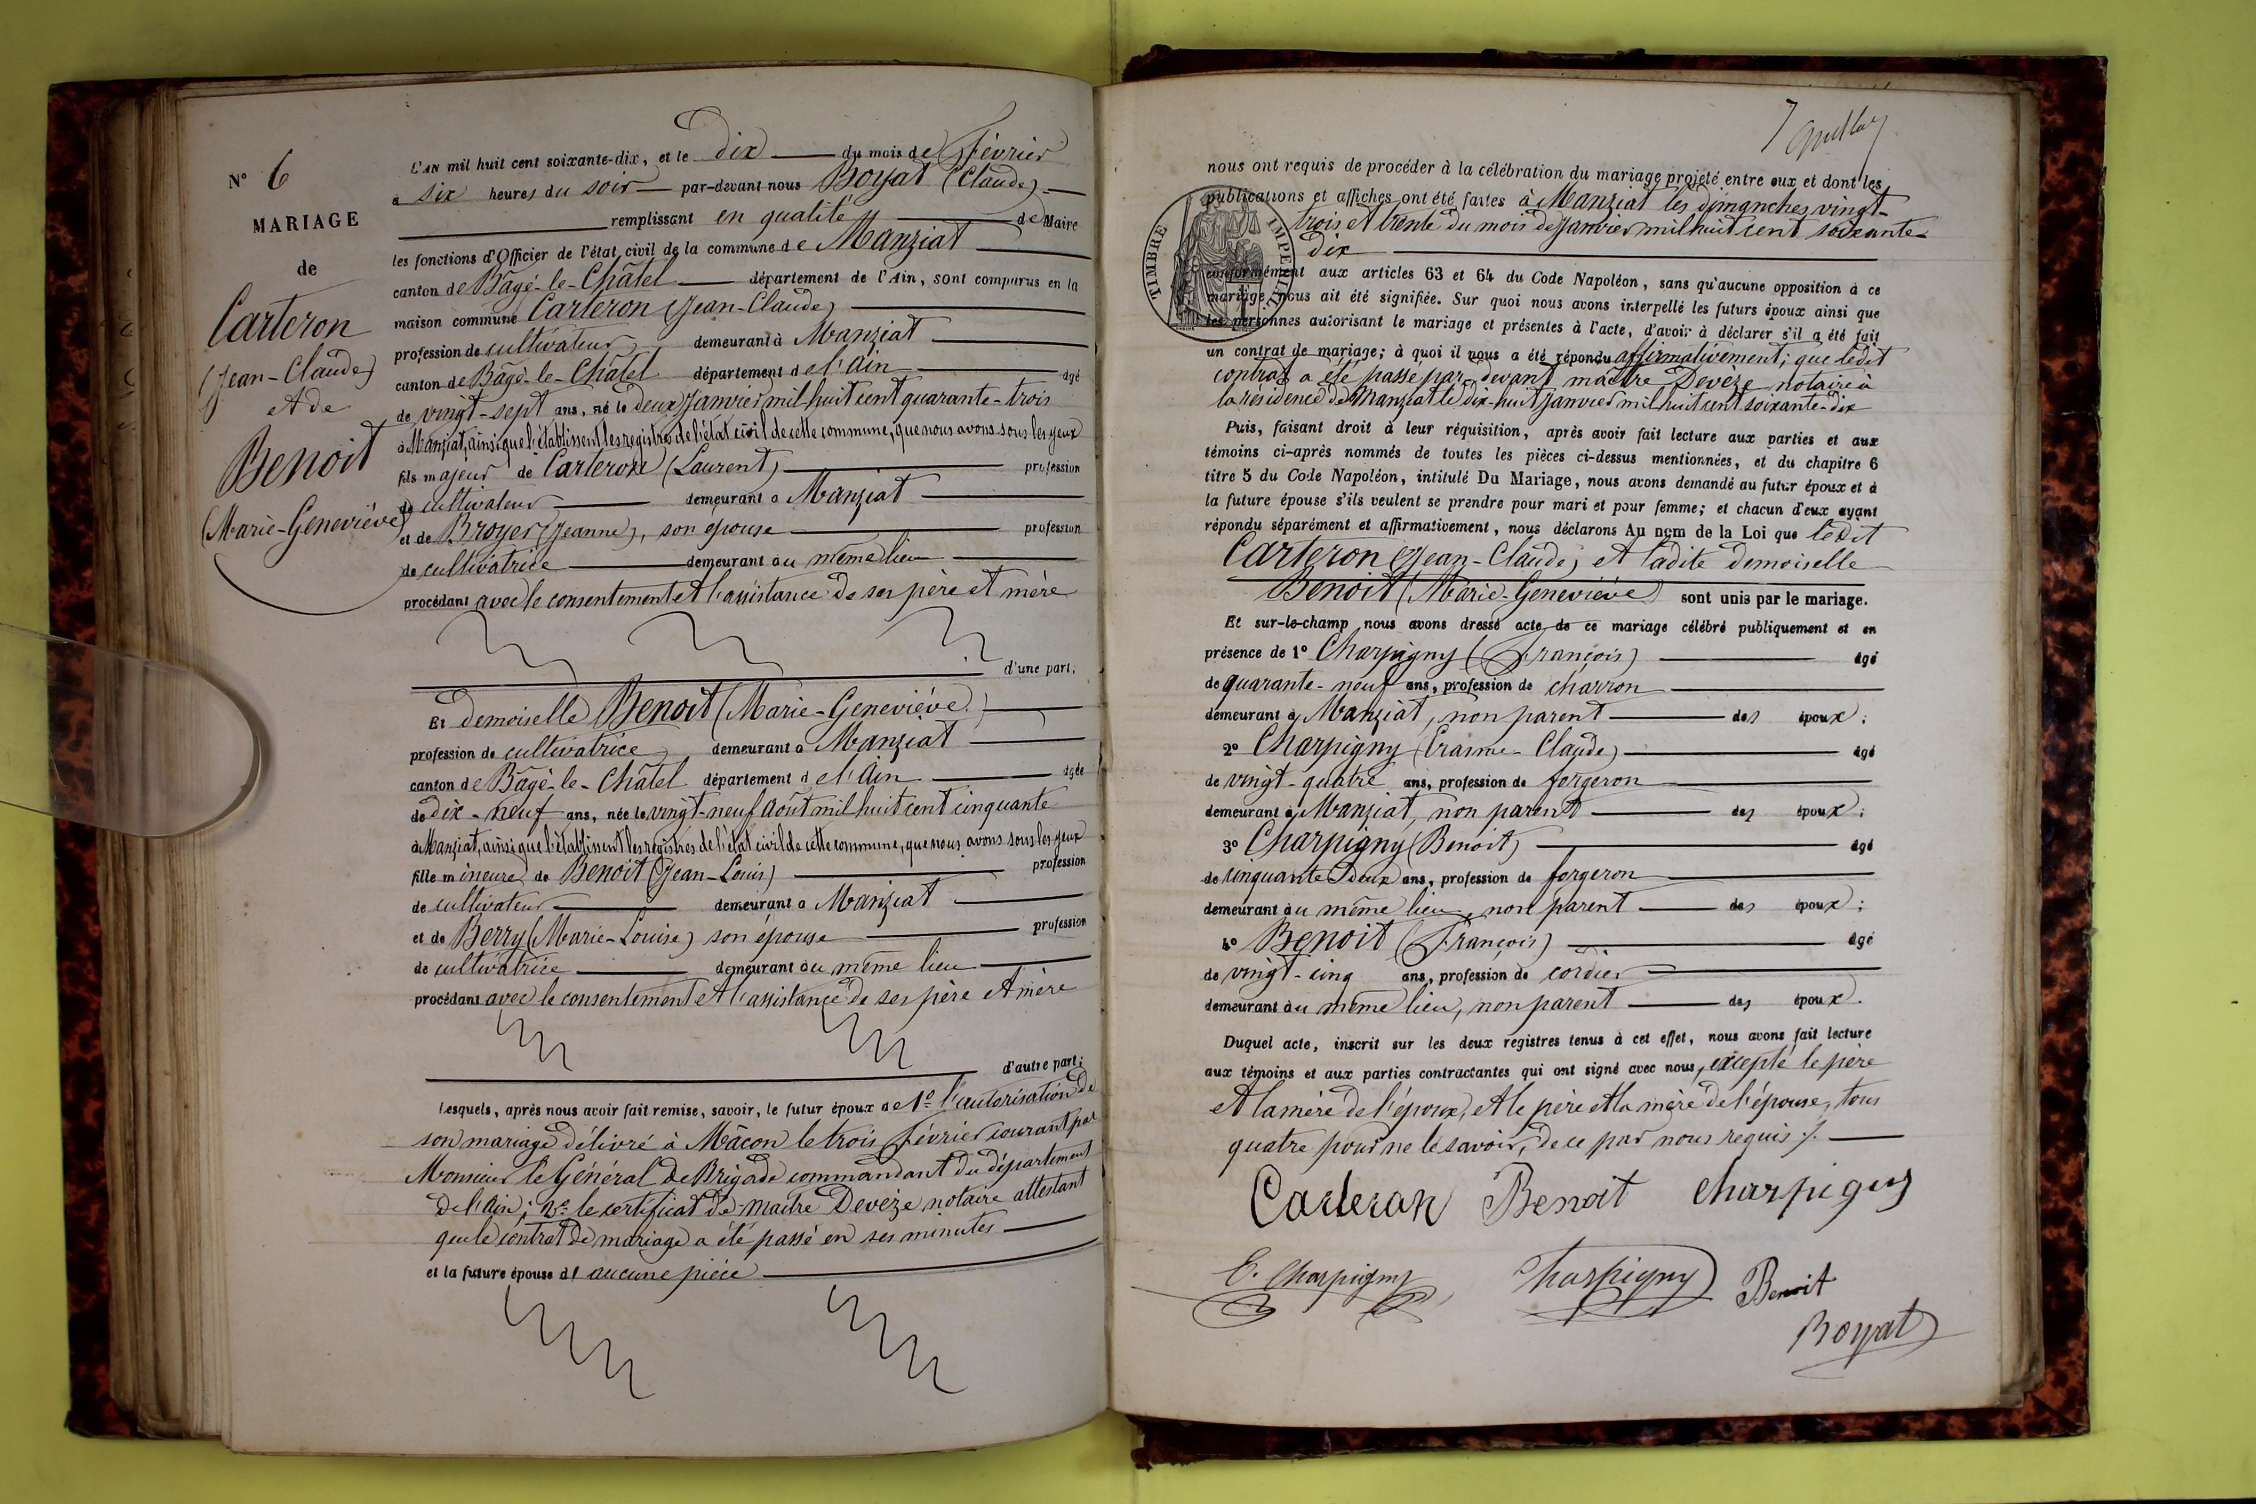 N° 6
MARIAGE
de
Carteron
(Jean-Claude)
et de
Benoit
(Marie-Geneviève)
L'AN mil huit cent soixante-dix, et le dix du mois de Février
à six heures du soir par-devant nous Boyat (Claude)
remplissant en qualité de Maire
les fonctions d'Officier de l'état civil de la commune de Manziat
canton de Bâgé-le-Châtel département de l'Ain, sont comparus en la
maison commune Carteron (Jean-Claude)
profession de cultivateur demeurant à Manziat
canton de Bâgé-le-Châtel département de l'Ain âgé
de vingt-sept ans, né le deux Janvier mil huit cent quarante-trois
à Manziat, ainsi que l'établissent les registres de l'état civil de cette commune, que nous avons sous les yeux
fils majeur de Carteron (Laurent) profession
de cultivateur demeurant à Manziat
et de Broyer (Jeanne), son épouse profession
de cultivatrice demeurant au même lieu
procédant avec le consentement et l'assistance de ses père et mère
d'une part;
Et demoiselle Benoit (Marie-Geneviève)
profession de cultivatrice demeurant à Manziat
canton de Bâgé-le-Châtel département de l'Ain âgée
de dix-neuf ans, née le vingt-neuf août mil huit cent cinquante
à Manziat, ainsi que l'établissent les registres de l'état civil de cette commune, que nous avons sous les yeux
fille mineure de Benoit (Jean-Louis) profession
de cultivateur demeurant à Manziat
et de Berry (Marie-Louise) son épouse profession
de cultivatrice demeurant au même lieu
procédant avec le consentement et l'assistance de ses père et mère
d'autre part;
Lesquels, après nous avoir fait remise, savoir, le futur époux de 1° l'autorisation de
son mariage délivré à Mâcon le trois Février courant par
Monsieur le Général de Brigade commandant du département
de l'Ain; 2° le certificat de maître Devèze notaire attestant
que le contrat de mariage a été passé en ses minutes
et la future épouse d' aucune pièce
nous ont requis de procéder à la célébration du mariage projeté entre eux et dont les
publications et affiches ont été faites à Manziat les dimanches vingt-
trois et trente du mois de Janvier mil huit cent soixante-
dix
conformément aux articles 63 et 64 du Code Napoléon, sans qu'aucune opposition à ce
mariage nous ait été signifiée. Sur quoi nous avons interpellé les futurs époux ainsi que
les personnes autorisant le mariage et présentes à l'acte, d'avoir à déclarer s'il a été fait
un contrat de mariage; à quoi il nous a été répondu affirmativement; que ledit
contrat a été passé par devant maître Devèze notaire à
la résidence de Manziat le dix-huit Janvier mil huit cent soixante-dix
Puis, faisant droit à leur réquisition, après avoir fait lecture aux parties et aux
témoins ci-après nommés de toutes les pièces ci-dessus mentionnées, et du chapitre 6
titre 5 du Code Napoléon, intitulé Du Mariage, nous avons demandé au futur époux et à
la future épouse s'ils veulent se prendre pour mari et pour femme; et chacun d'eux ayant
répondu séparément et affirmativement, nous déclarons Au nom de la Loi que ledit
Carteron (Jean-Claude) et ladite demoiselle
Benoit (Marie-Geneviève) sont unis par le mariage.
Et sur-le-champ nous avons dressé acte de ce mariage célébré publiquement et en
présence de 1° Charpigny (François) âgé
de quarante-neuf ans, profession de charron
demeurant à Manziat, non parent des époux;
2° Charpigny (Erasme-Claude) âgé
de vingt-quatre ans, profession de forgeron
demeurant à Manziat, non parent des époux;
3° Charpigny (Benoit) âgé
de cinquante-deux ans, profession de forgeron
demeurant au même lieu, non parent des époux;
4° Benoit (François) âgé
de vingt-cinq ans, profession de cordier
demeurant au même lieu, non parent des époux.
Duquel acte, inscrit sur les deux registres tenus à cet effet, nous avons fait lecture
aux témoins et aux parties contractantes qui ont signé avec nous, excepté le père
et la mère de l'époux, et le père et la mère de l'épouse, tous
quatre pour ne le savoir, de ce par nous requis ./.
Carteron Benoit Charpigny
E. Charpigny Charpigny Benoit
Boyat
TIMBRE IMPERIAL